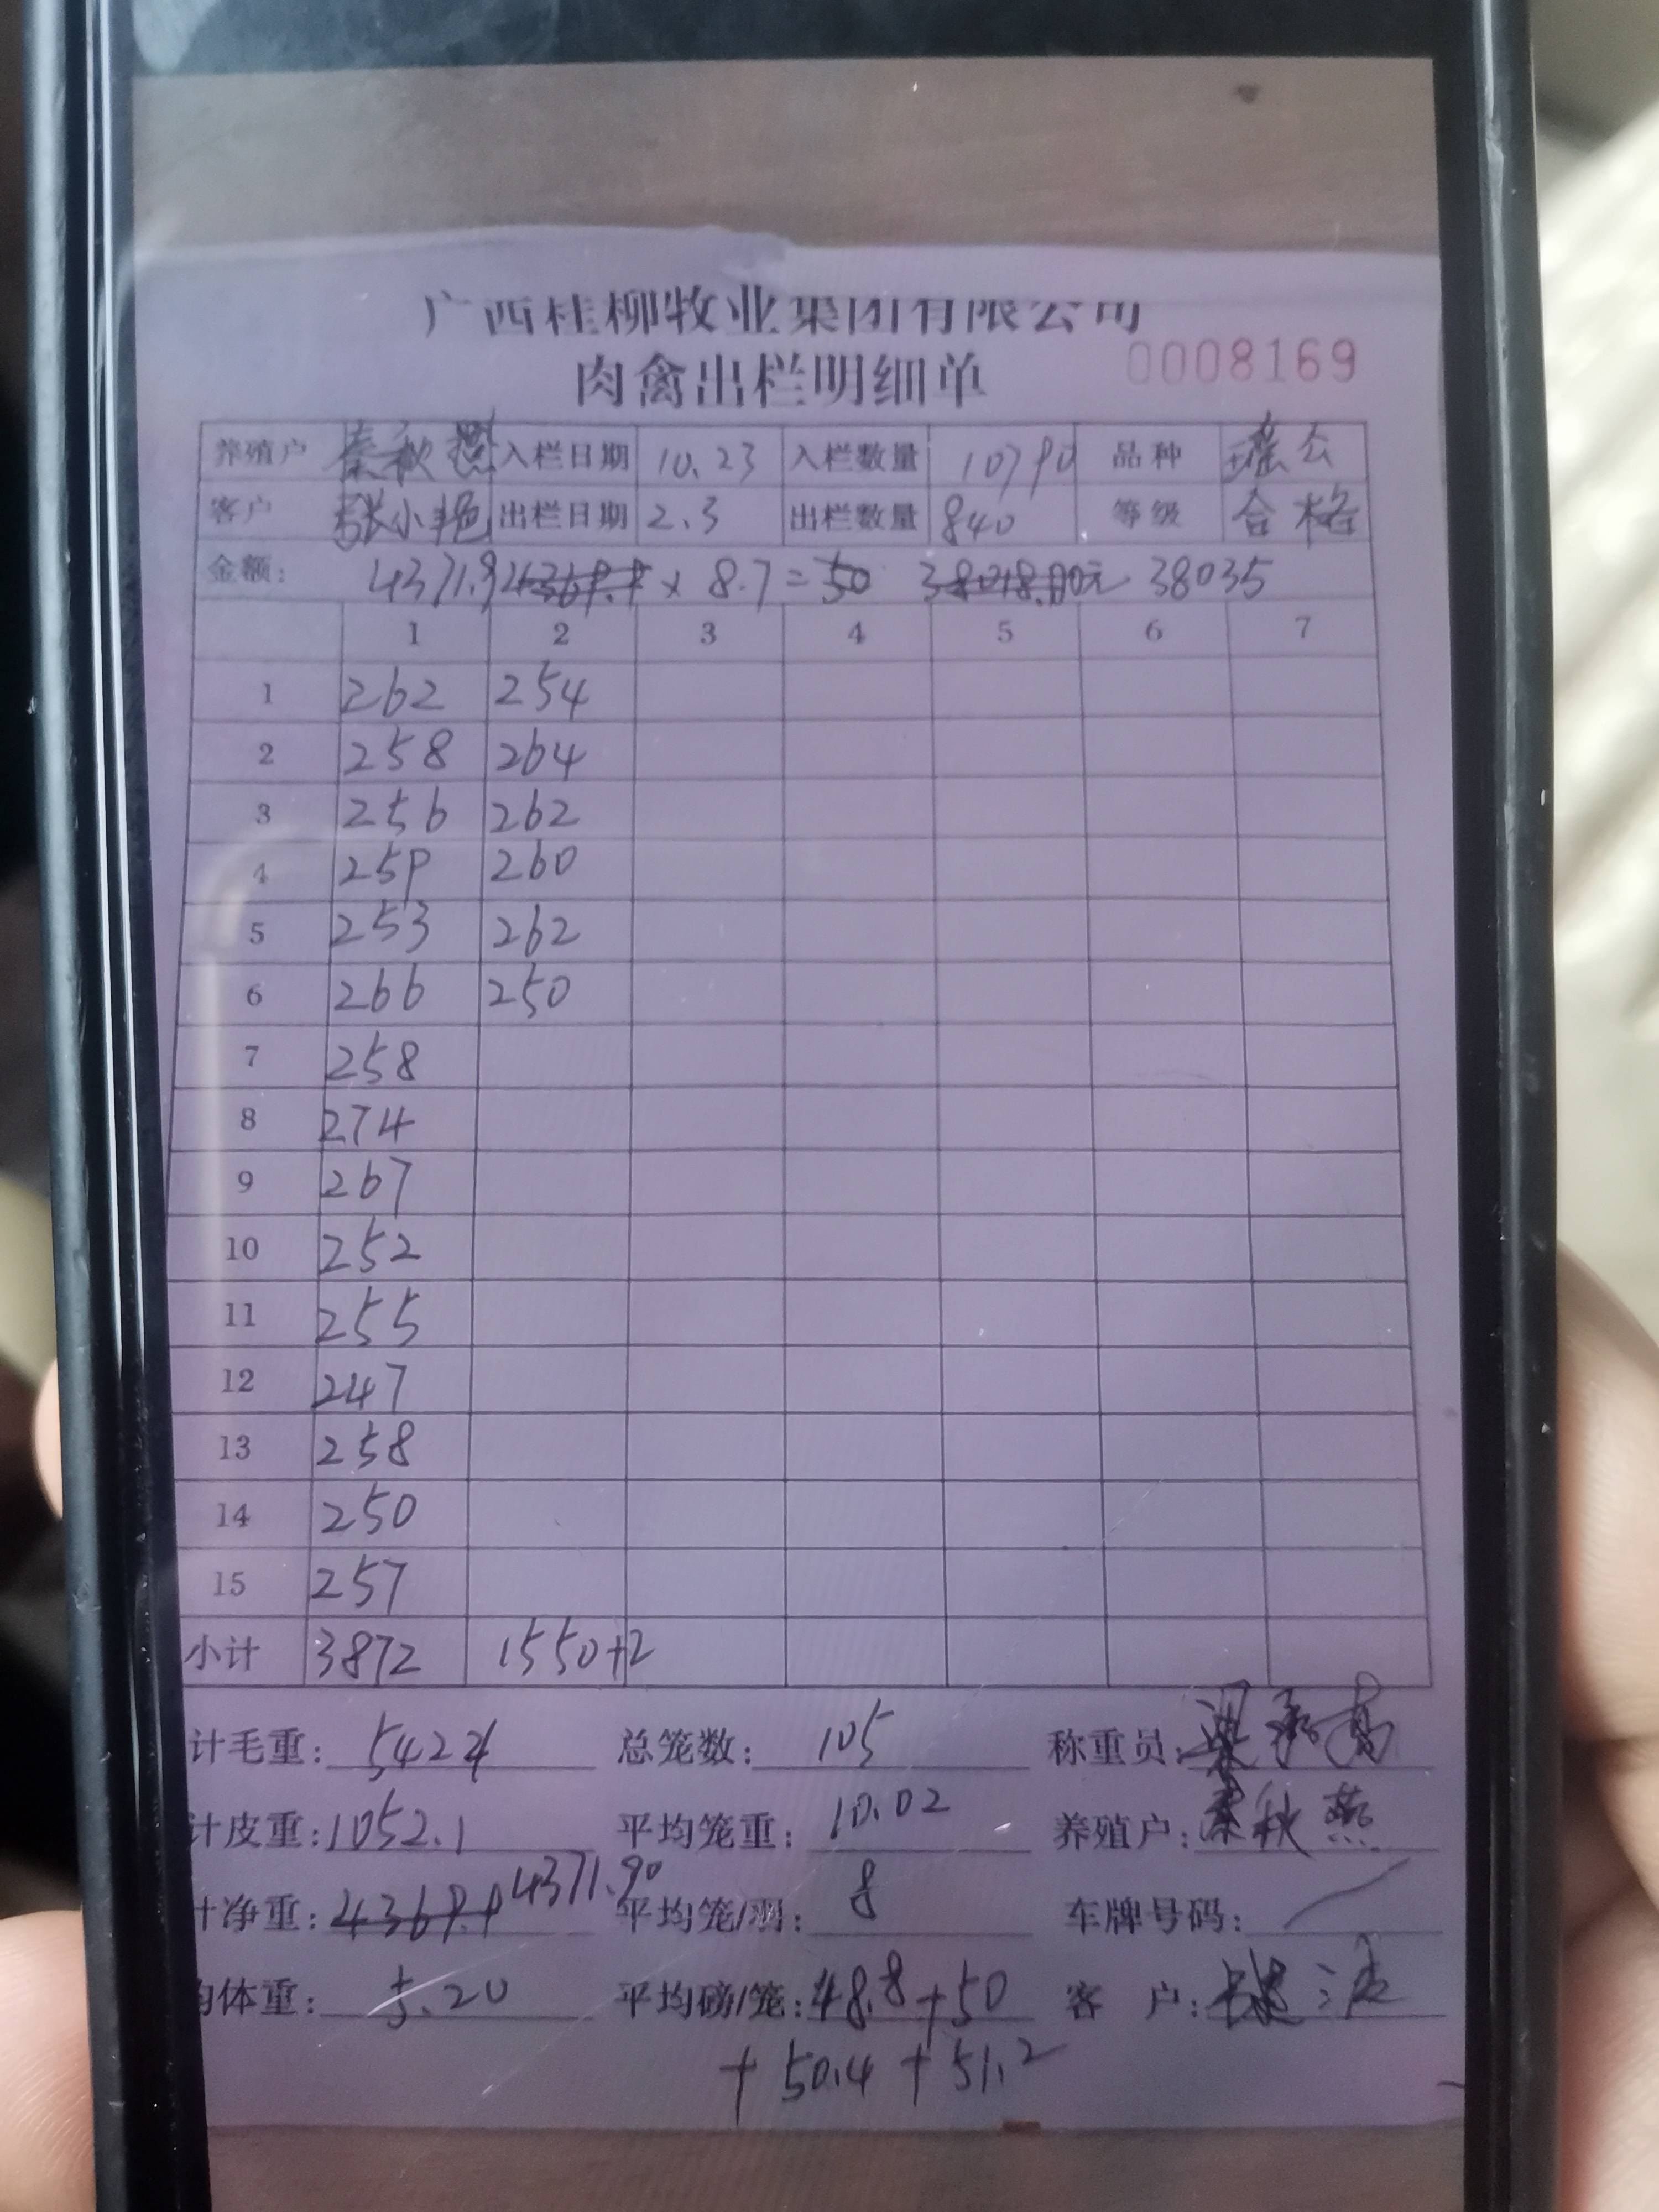 广西桂柳牧业集团有限公司
肉禽出栏明细单 0008169
养殖户 秦秋燕 入栏日期 10.23 入栏数量 10790 品种 瑶公
客户 张小艳 出栏日期 2.3 出栏数量 840 等级 合格
金额: 4371.9 4369.9 × 8.7 = 50 38018.00元 38035
1 2 3 4 5 6 7
1 262 254
2 258 264
3 256 262
4 259 260
5 253 262
6 266 250
7 258
8 274
9 267
10 252
11 255
12 247
13 258
14 250
15 257
小计 3872 1550+2
计毛重: 5424 总笼数: 105 称重员:
计皮重: 1052.1 平均笼重: 10.02 养殖户: 秦秋燕
计净重: 4369.9 4371.90 平均笼/羽: 8 车牌号码:
均体重: 5.20 平均磅/笼: 48.8+50 客 户:
+ 50.4 + 51.2